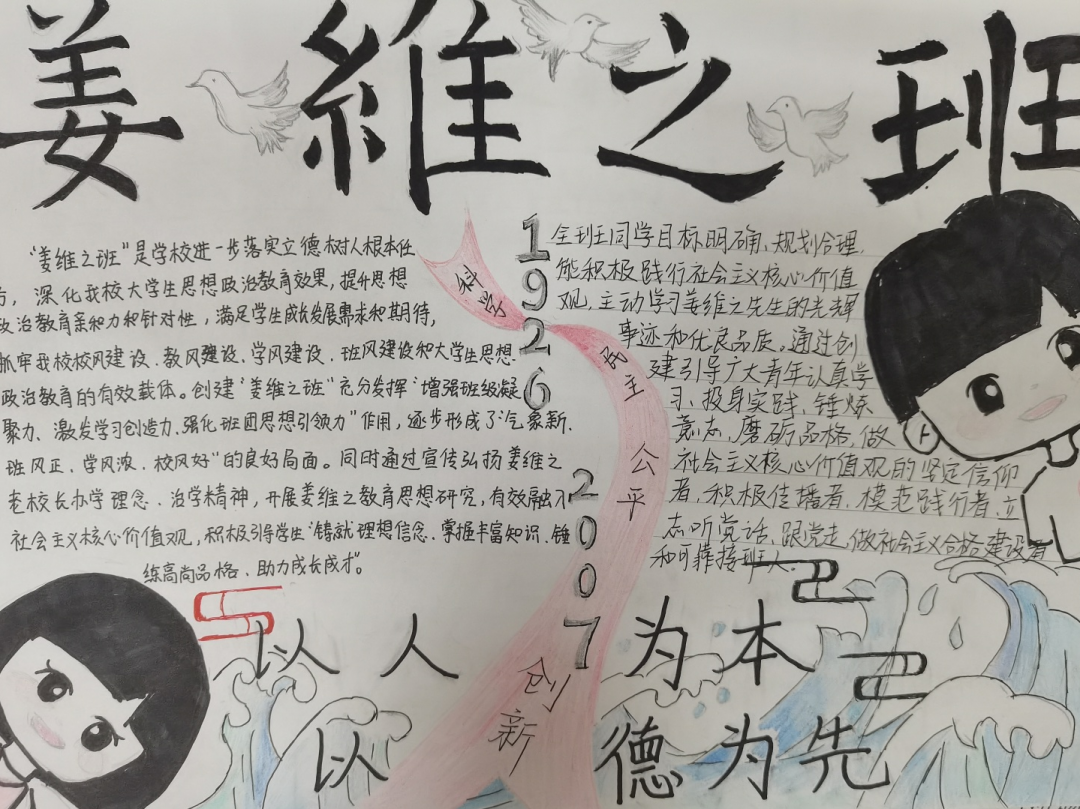 姜維之班
"姜维之班"是学校进一步落实立德树人根本任
方，深化我校大学生思想政治教育效果，提升思想
政治教育亲和力和针对性，满足学生成长发展需求和期待，
抓牢我校校风建设、教风建设、学风建设、班风建设和大学生思想
政治教育的有效载体。创建"姜维之班"充分发挥"增强班级凝
聚力、激发学习创造力、强化班团思想引领力"作用，逐步形成了"气象新、
班风正、学风浓、校风好"的良好局面。同时通过宣传弘扬姜维之
老校长办学理念、治学精神，开展姜维之教育思想研究，有效融入
社会主义核心价值观，积极引导学生"铸就理想信念、掌握丰富知识、锤
练高尚品格、助力成长成才"。
科学
民主
公平
创新
1926
2007
全班同学目标明确、规划合理，
能积极践行社会主义核心价值
观，主动学习姜维之先生的光辉
事迹和优良品质。通过创
建引导广大青年认真学
习、投身实践、锤炼
意志、磨砺品格，做
社会主义核心价值观的坚定信仰
者、积极传播者、模范践行者，立
志听党话、跟党走，做社会主义合格建设者
和可靠接班人。
以人为本
以德为先